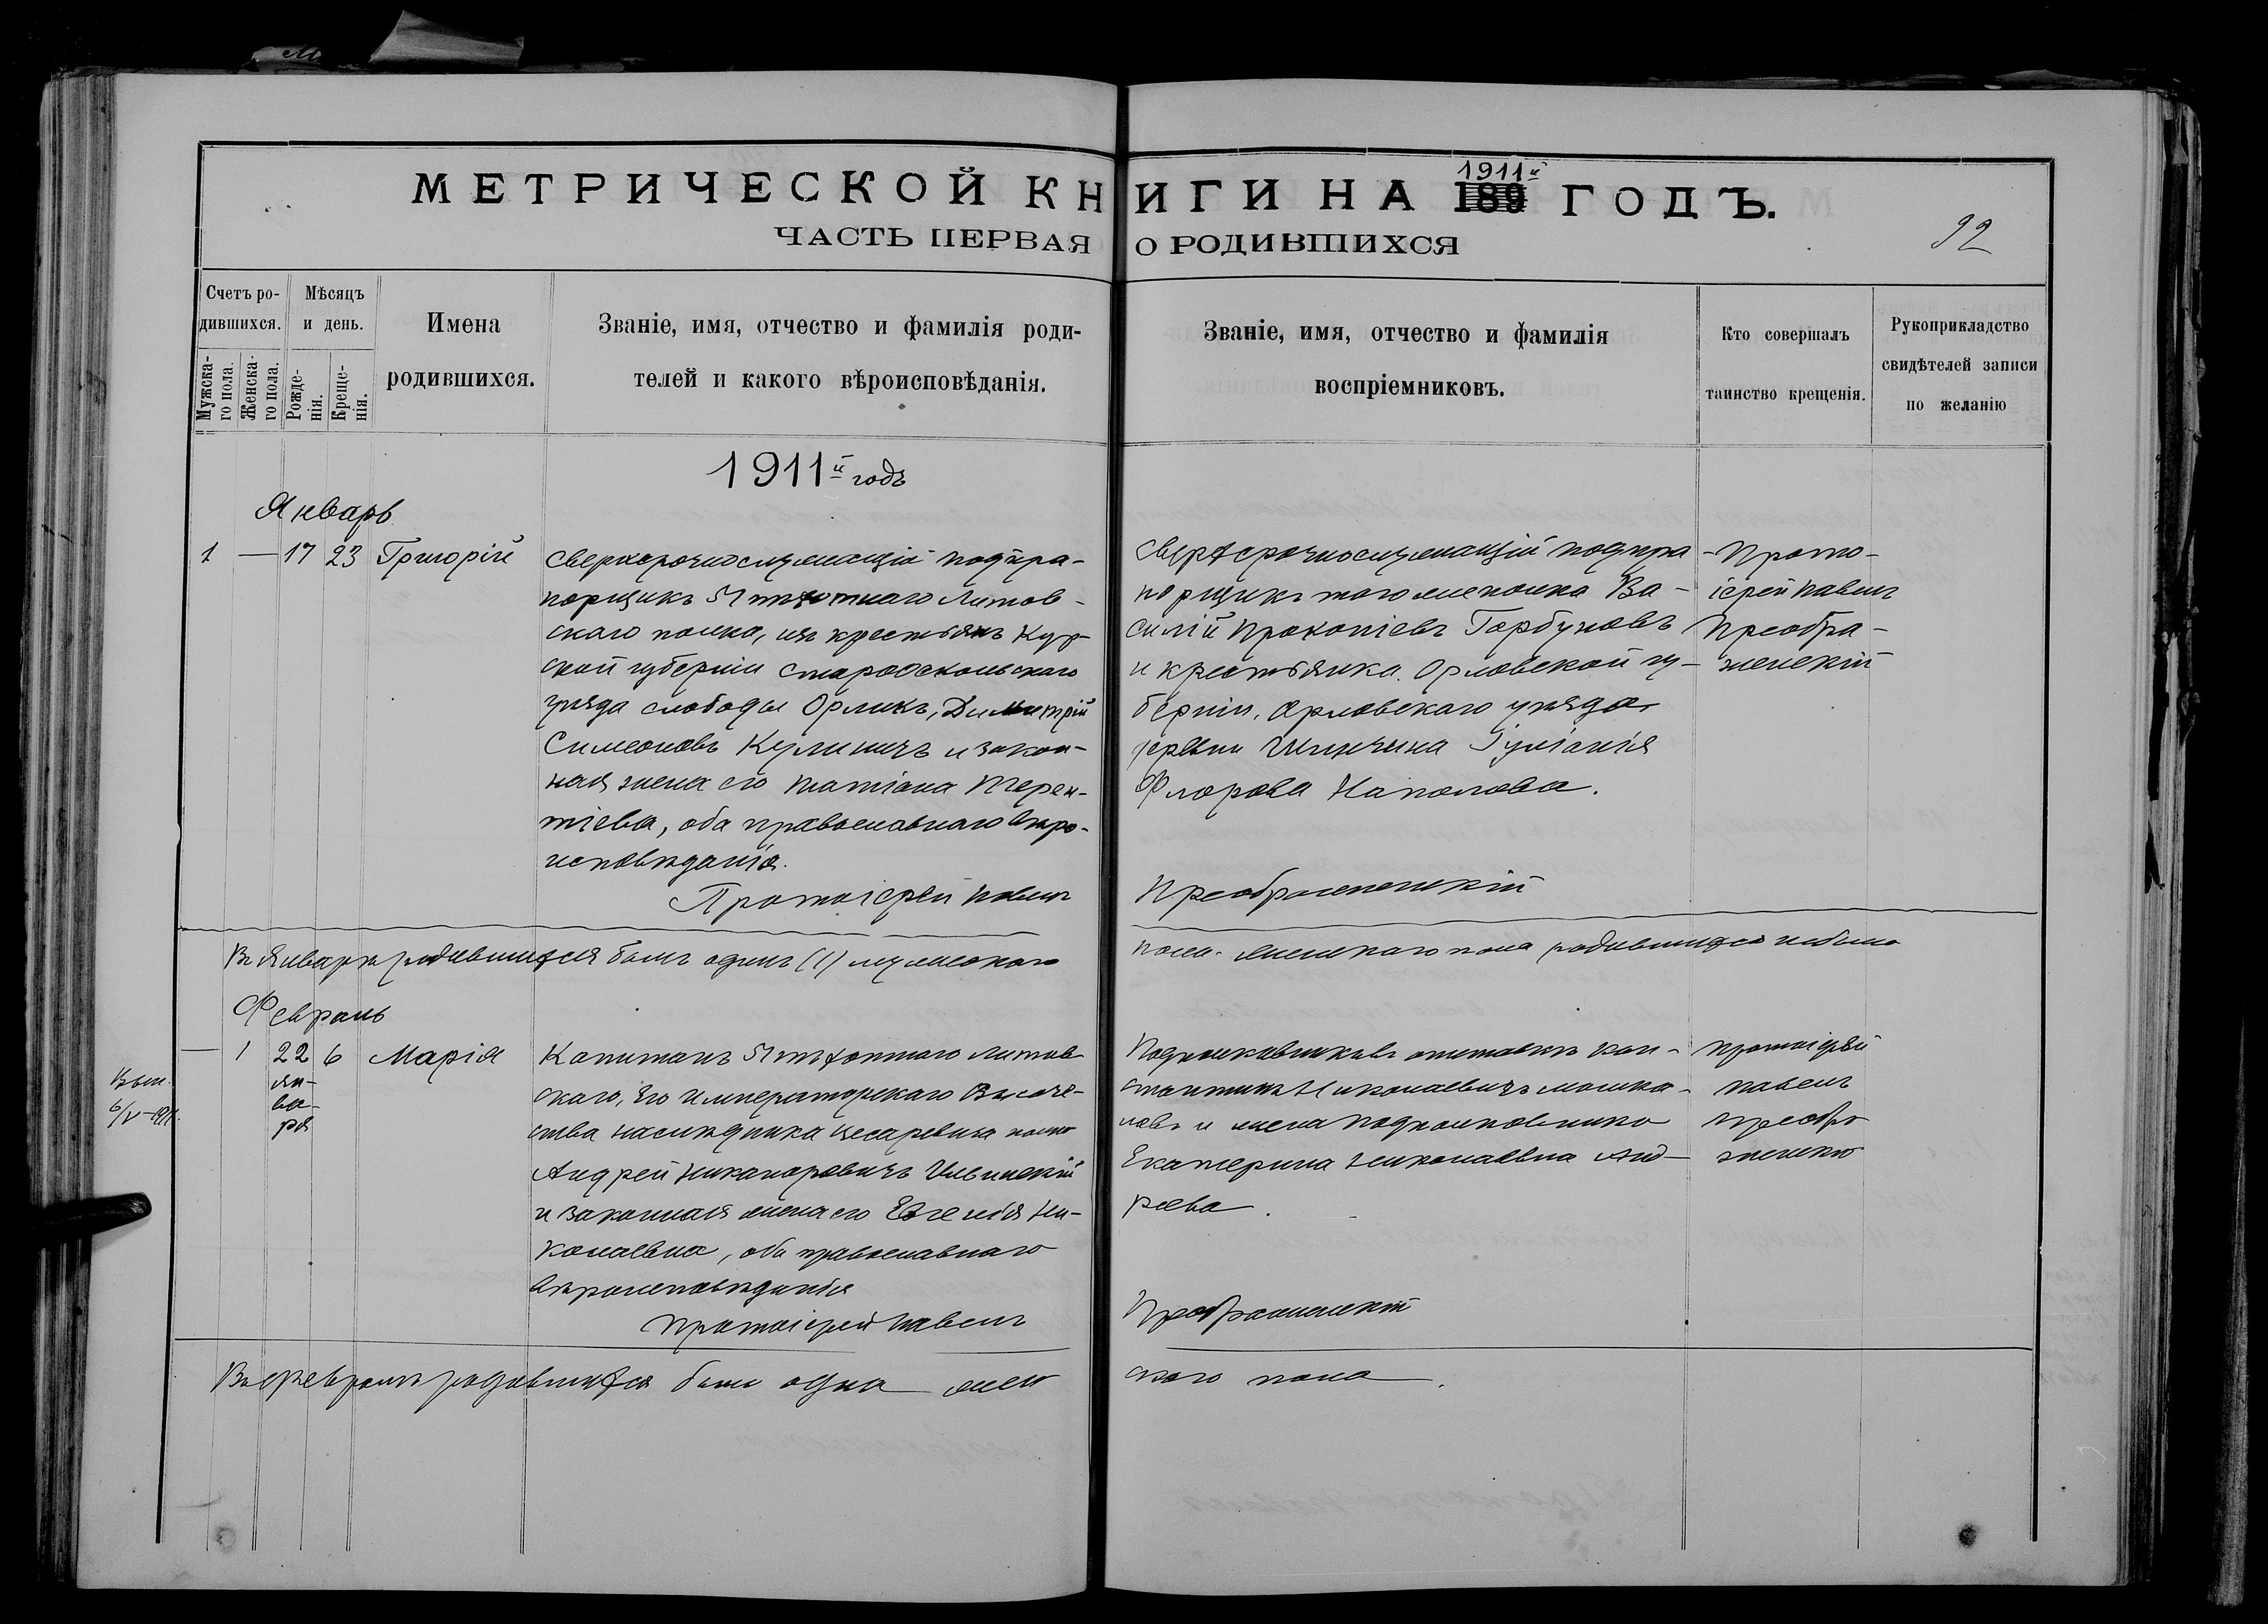 МЕТРИЧЕСКОЙ КНИГИ НА 189 1911й ГОДЪ.
ЧАСТЬ ПЕРВАЯ О РОДИВШИХСЯ
92
Счетъ ро-
дившихся.
Мужска-
го пола.
Женска-
го пола.
Мѣсяцъ
и день.
Рожде-
нія.
Креще-
нія.
Имена
родившихся.
Званіе, имя, отчество и фамилія роди-
телей и какого вѣроисповѣданія.
Званіе, имя, отчество и фамилія
воспріемниковъ.
Кто совершалъ
таинство крещенія.
Рукоприкладство
свидѣтелей записи
по желанію
1911й годъ
Январь
1 — 17 23 Григорій
Сверхсрочнослужащій подпра-
порщикъ 51 пѣхотнаго Литов-
скаго полка, изъ крестьянъ Кур-
ской губерніи Старооскольскаго
уѣзда слободы Орликъ, Димитрій
Симеоновъ Кулиничъ и закон-
ная жена его Татіана Терен-
тіева, оба православнаго вѣро-
исповѣданія.
Сверхсрочнослужащій подпра-
порщикъ того же полка Ва-
силій Прокопіевъ Горбуновъ
и крестьянка Орловской гу-
берніи, Орловскаго уѣзда
Іуліанія
Флорова
Прото-
іерей Павелъ
Преобра-
женскій
Протоіерей Павелъ Преображенскій
Въ Январѣ родившихся былъ одинъ (1) мужескаго пола. Женскаго пола родившихся не было
Февраль
— 1 22 6 Марія
ян-
ва-
ря
6/V–1911.
Капитанъ 51 пѣхотнаго Литов-
скаго, Его Императорскаго Высоче-
ства Наслѣдника Цесаревича полка
Андрей Никаноровичъ Ильинскій
и законная жена его Евгенія Ни-
колаевна, оба православнаго
вѣроисповѣданія
Подполковникъ Кон-
стантинъ Николаевичъ
и жена подполковника
Екатерина Николаевна Анд-
реева.
Протоіерей
Павелъ
Преобра
женскій
Протоіерей Павелъ Преображенскій
Въ Февралѣ родившихся была одна женскаго пола.